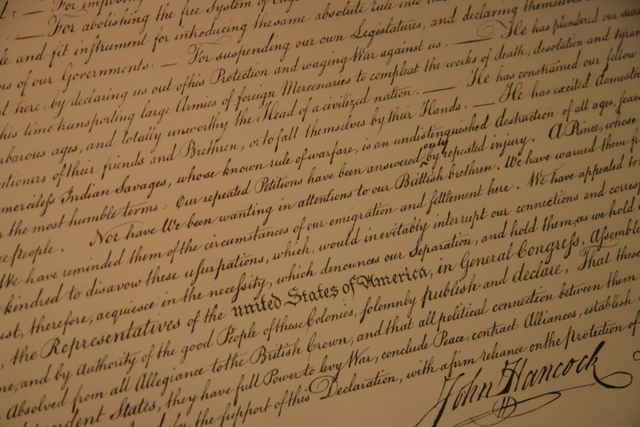 — For imposing
— For abolishing the free System of
and fit instrument for introducing the same absolute rule into
of our Governments. — For suspending our own Legislatures, and declaring themselves
here, by declaring us out of his Protection and waging War against us. — He has plundered our
this time transporting large Armies of foreign Mercenaries to compleat the works of death, desolation and tyran
rbarous ages, and totally unworthy the Head of a civilized nation. — He has constrained our fellow
utioners of their friends and Brethren, or to fall themselves by their Hands. — He has excited domestic
merciless Indian Savages, whose known rule of warfare, is an undistinguished destruction of all ages, sexes
the most humble terms: Our repeated Petitions have been answered only by repeated injury. A Prince, whose
ree people. Nor have We been wanting in attentions to our Brittish brethren. We have warned them
We have reminded them of the circumstances of our emigration and settlement here. We have appealed to
kindred to disavow these usurpations, which, would inevitably interrupt our connections and corres
ust, therefore, acquiesce in the necessity, which denounces our Separation, and hold them, as we hold
, the Representatives of the united States of America, in General Congress, Assemble
me, and by Authority of the good People of these Colonies, solemnly publish and declare, That these
Absolved from all Allegiance to the British Crown, and that all political connection between them
endent States, they have full Power to levy War, conclude Peace, contract Alliances, establish
for the support of this Declaration, with a firm reliance on the protection of
John Hancock